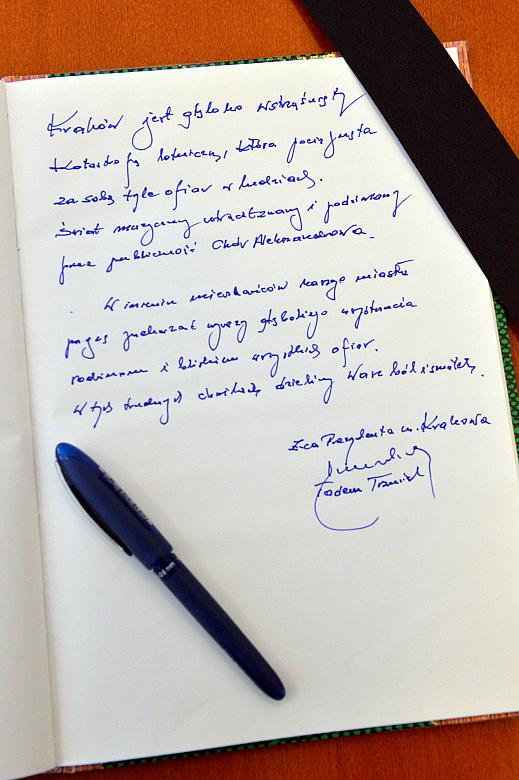 Kraków jest głęboko wstrząśnięty
katastrofą lotniczą, która pociągnęła
za sobą tyle ofiar w ludziach.
Świat muzyczny utracił znany i podziwiany
przez publiczność Chór Aleksandrowa.
W imieniu mieszkańców naszego miasta
pragnę przekazać wyrazy głębokiego współczucia
rodzinom i bliskim wszystkich ofiar.
W tych trudnych chwilach dzielimy Wasz ból i smutek.
Z-ca Prezydenta m. Krakowa
Tadeusz Trzmiel